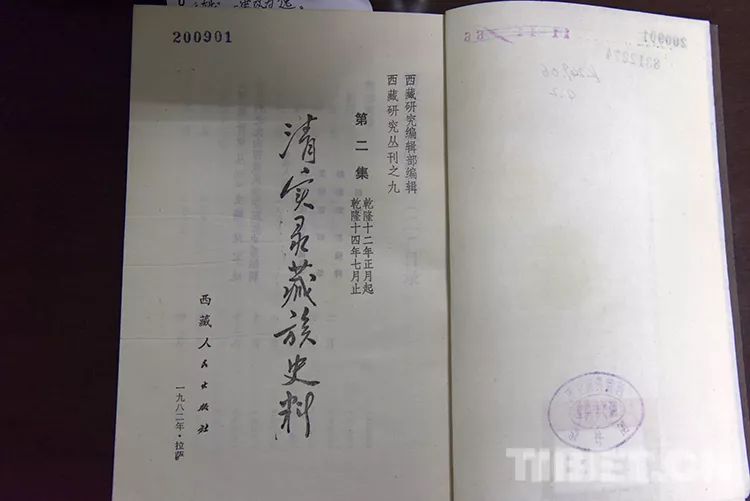 200901
西藏研究编辑部编辑
西藏研究丛刊之九
第二集
乾隆十二年正月起
乾隆十四年七月止
清实录藏族史料
西藏人民出版社
一九八二年·拉萨
200901
8312274
TIBET.CN